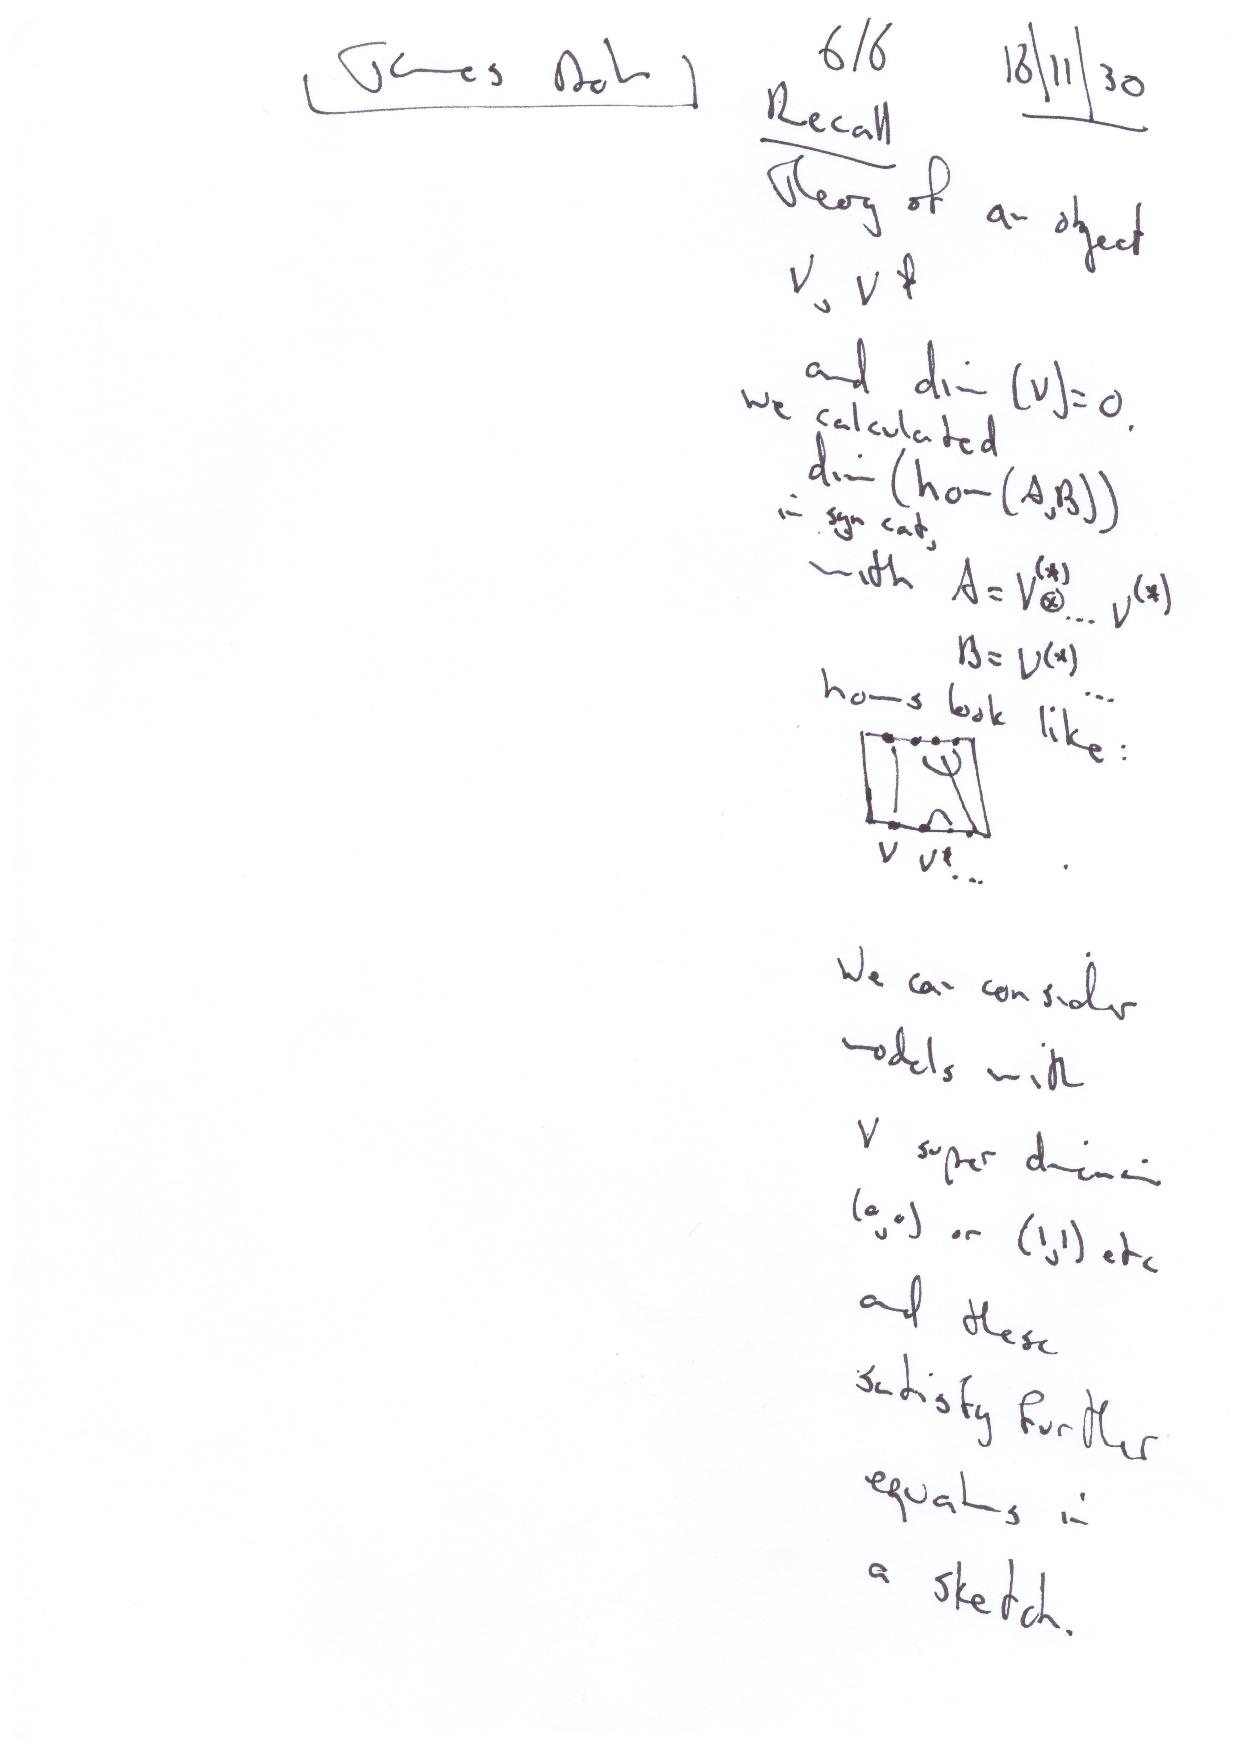 James Dol
6/6
18/11/30
Recall
Theory of an object
V, V*
and dim (V)=0.
We calculated
dim (hom (A,B))
in sym cat,
with A = V^(*) ⊗ ... V^(*)
B = V^(*) ...
homs look like:
V V* ...
We can consider
models with
V super dimension
(0,0) or (1,1) etc
and these
satisfy further
equations in
a sketch.